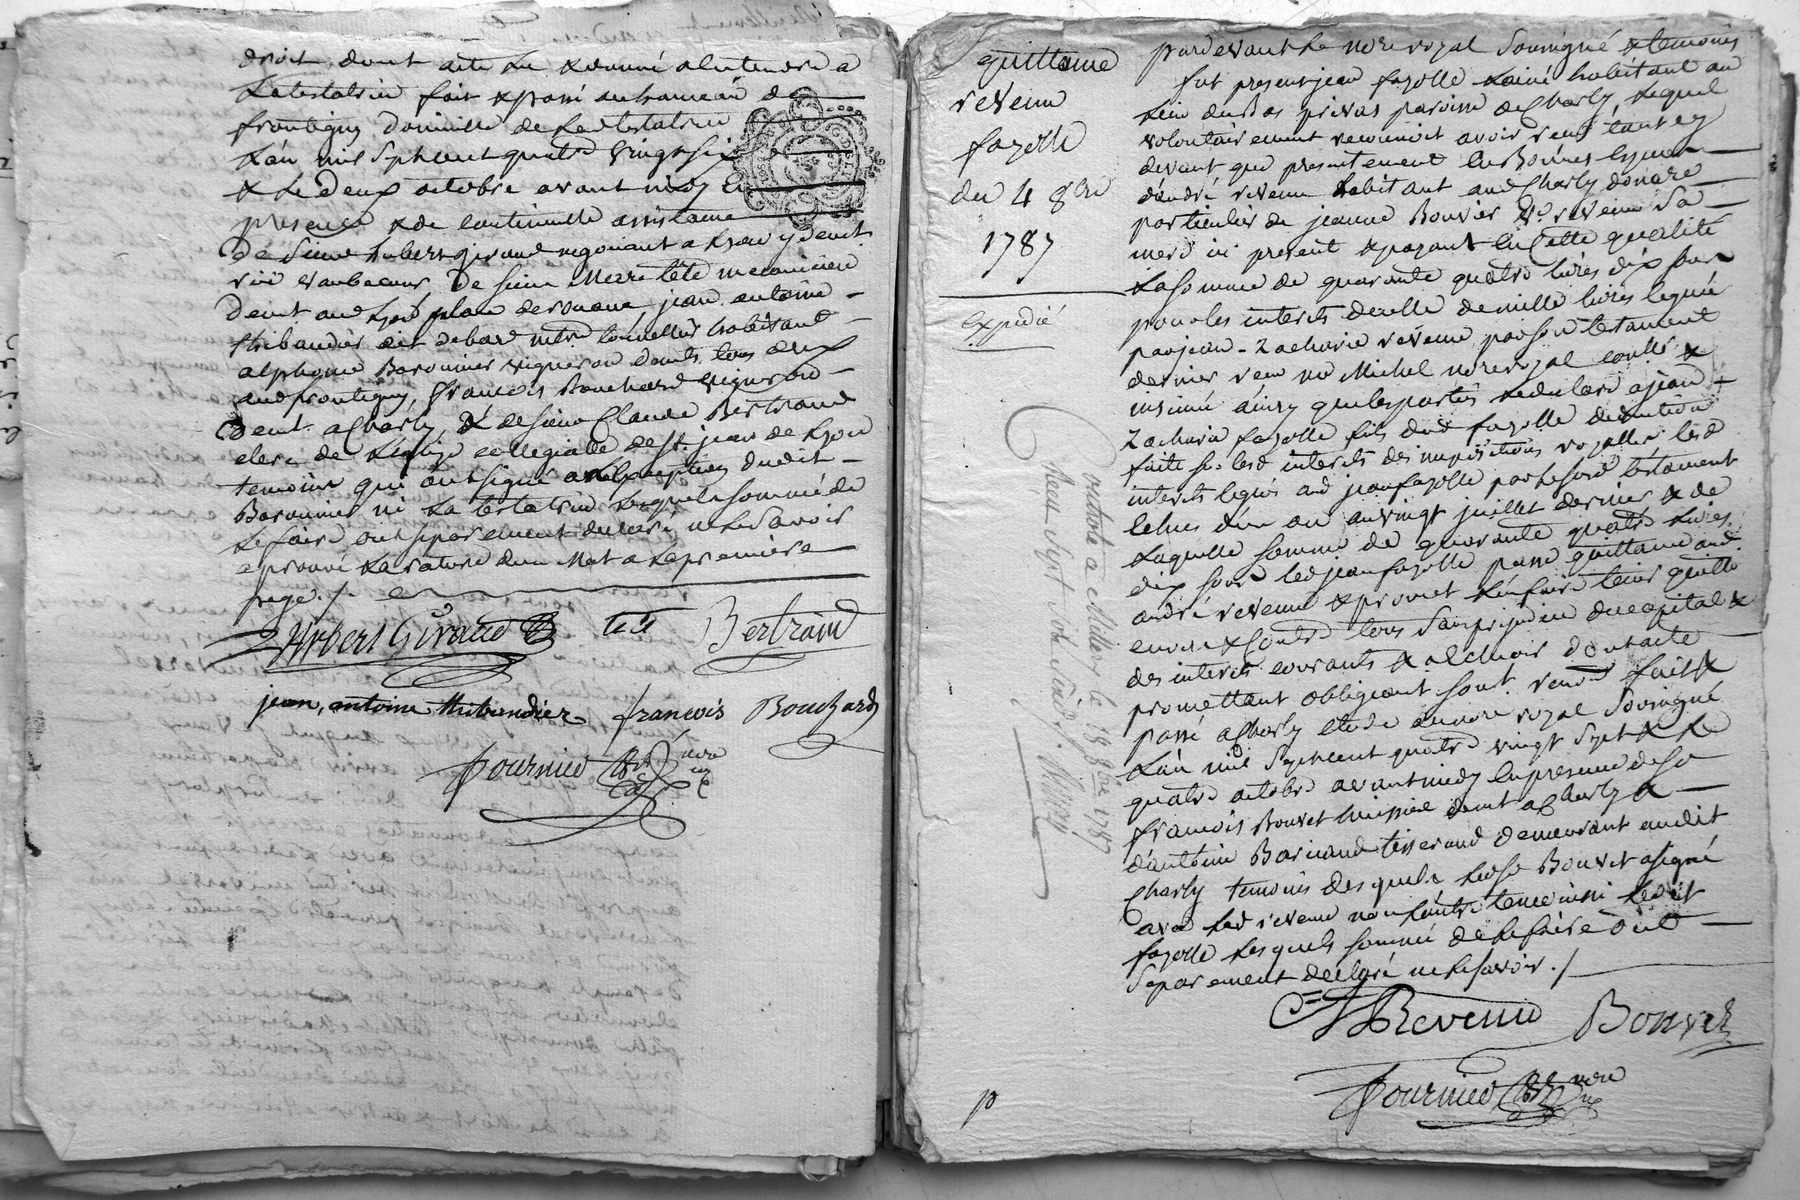 droit dont acte lu & donné a entendre a
la testatrice fait & passé au hameau de
frontigny domicille de la testatrice
l'an mil sept cent quatre vingt six
& le deux octobre avant midy en
presence & de continuelle assistance
de Sieur hubert giraud negotiant a Lyon y demt
rüe Vaubecour De sieur Merre tête mecanicien
demt aud Lyon place de rouane, jean antoine
thibaudier dit debard mtre tonnellier habitant
alphonse Baronnier vigneron demts tous deux
aud frontigny, francois Bouchard vigneron
demt a Charly, & de sieur Claude Bertrand
clerc de l'eglize collegialle de St. jean de Lyon
temoins qui ont signé a l'exception dudit
Baronnier ni la testatrice lesquels sommé de
le faire ont separement declaré ne le Savoir
aprouvé la rature d'un Mot a la premiere
page ./.
hubert Giraud
tete
Bertrand
jean, antoine thibaudier
francois Bouchard
fournier nore
quittance
revenu
fazolle
du 4 8bre
1787
expedié
Controlé a Millery le 18 8bre 1787
Reçu Sept sols six d.
Pardevant Le nore royal Soussigné & temoins
fut present jean fazolle L'ainé habitant au
lieu du Bas privas paroisse de Charly, Lequel
volontairement reconnoit avoir reçu tant cy
devant que presentement en Bonnes especes
d'andré revenu habitant aud Charly donataire
particulier de jeanne Bouvier Ve revenu Sa
mere ici present & payant en Cette qualité
La somme de quarante quatre livres dix sous
pour les interets de celle de mille livres leguée
par jean-Zacharie revenu par son testament
dernier recu me Michel nore royal controllé &
insinué ainsy que les parties le declare a jean
Zacharie fazolle fils dud fazolle deduction
faite sur lesd interets des impositions royalles lesd
interets legués aud jean fazolle par le susd testament
echus d'un an au vingt juillet dernier & de
Laquelle somme de quarante quatre livres
dix sous led jean fazolle passe quittance aud
andré revenu & promet l'en faire tenir quitte
envers & contre tous Sans prejudice du capital &
des interets courants & a echoir dont acte
promettant obligeant soumt. renond fait &
passé a Charly etude du nore royal Soussigné
L'an mil Sept cent quatre vingt Sept & le
quatre octobre avant midy en presence de Sr
francois Bouvet huissier demt a Charly &
d'antoine Barnaud tisserand demeurant audit
Charly temoins desquels led sr Bouvet a signé
avec led revenu non l'autre temoin ni ledit
fazolle Lesquels sommé de le faire ont
Separement declaré ne le savoir ./
A Revenu
Bouvet
fournier nore